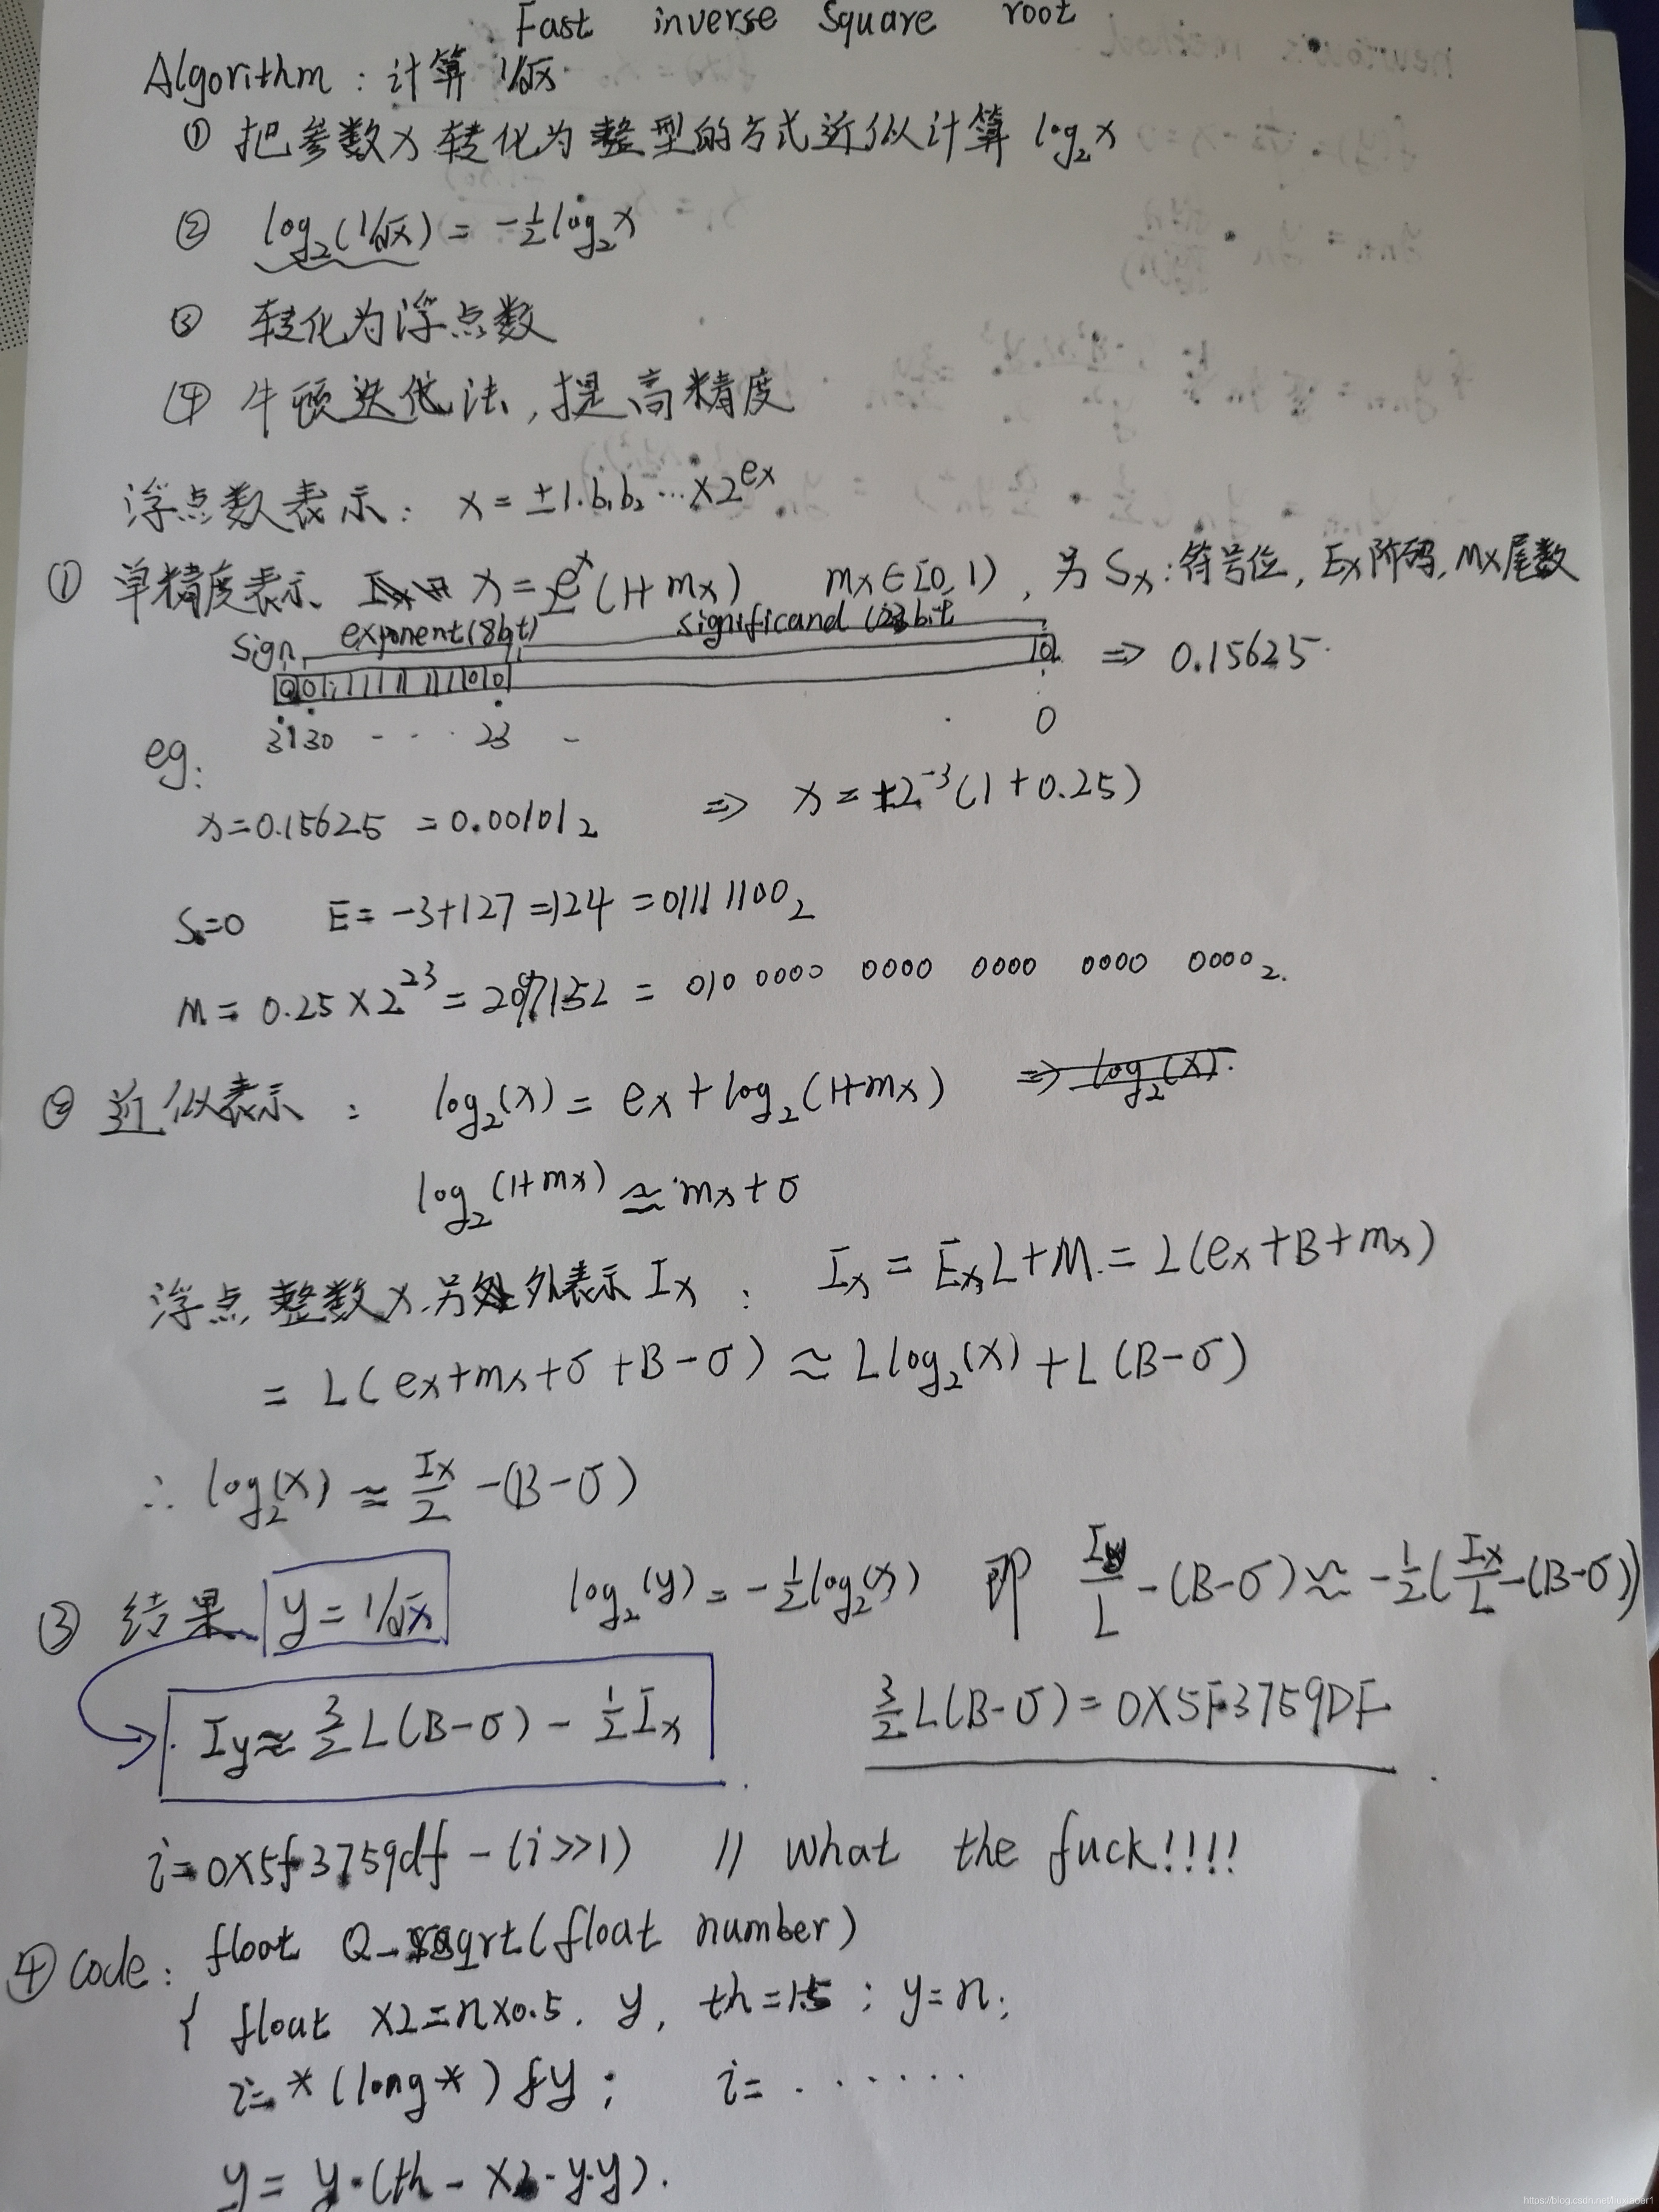 Fast inverse Square root
Algorithm : 计算 1/√x
① 把参数x转化为整型的方式近似计算 log₂x
② log₂(1/√x) = -½log₂x
③ 转化为浮点数
④ 牛顿迭代法,提高精度
浮点数表示: x = ±1.b₁b₂…×2^ex
① 单精度表示、 x = 2^ex(1+mx) mx∈[0,1) , 另 Sx:符号位, Ex阶码, Mx尾数
sign exponent(8bit) significand (23bit
⇒ 0.15625
31 30 - - · 23 - 0
eg:
x=0.15625 = 0.00101₂ ⇒ x = +2⁻³(1+0.25)
S=0 E = -3+127 = 124 = 0111 1100₂
M = 0.25×2²³ = 2097152 = 010 0000 0000 0000 0000 0000₂.
② 近似表示 : log₂(x) = ex + log₂(1+mx) ⇒ log₂(x).
log₂(1+mx) ≈ mx+σ
浮点整数x.另外表示 Ix : Ix = ExL+M = L(ex+B+mx)
= L(ex+mx+σ+B-σ) ≈ Llog₂(x) + L(B-σ)
∴ log₂(x) ≈ Ix/2 -(B-σ)
③ 结果、 y = 1/√x log₂(y) = -½log₂(x) 即 Iy/L -(B-σ) ≈ -½(Ix/L -(B-σ))
Iy ≈ 3/2 L(B-σ) - ½Ix 3/2 L(B-σ) = 0X5F3759DF
i=0X5f3759df - (i>>1) // what the fuck!!!!
④ Code: float Q_rsqrt(float number)
{ float x2=n×0.5. y, th=1.5 ; y=n;
i= *(long*) &y; i= · · · · · ·
y = y·(th - x2·y·y).
https://blog.csdn.net/liuxiaoer1